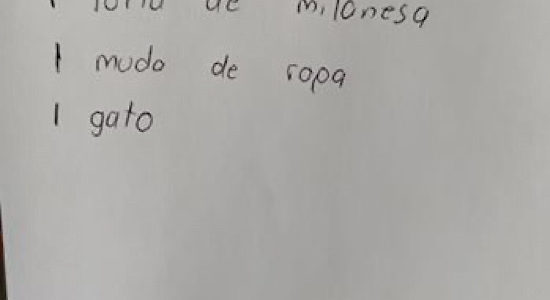 1 de milanesa
1 muda de ropa
1 gato